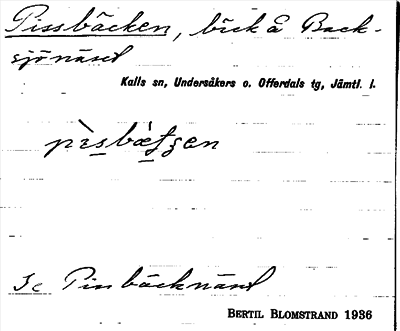 Pissbäcken, bäck å Back-
sjönäset
Kalls sn, Undersåkers o. Offerdals tg, Jämtl. l.
Se Pinbäcknäset
BERTIL BLOMSTRAND 1936